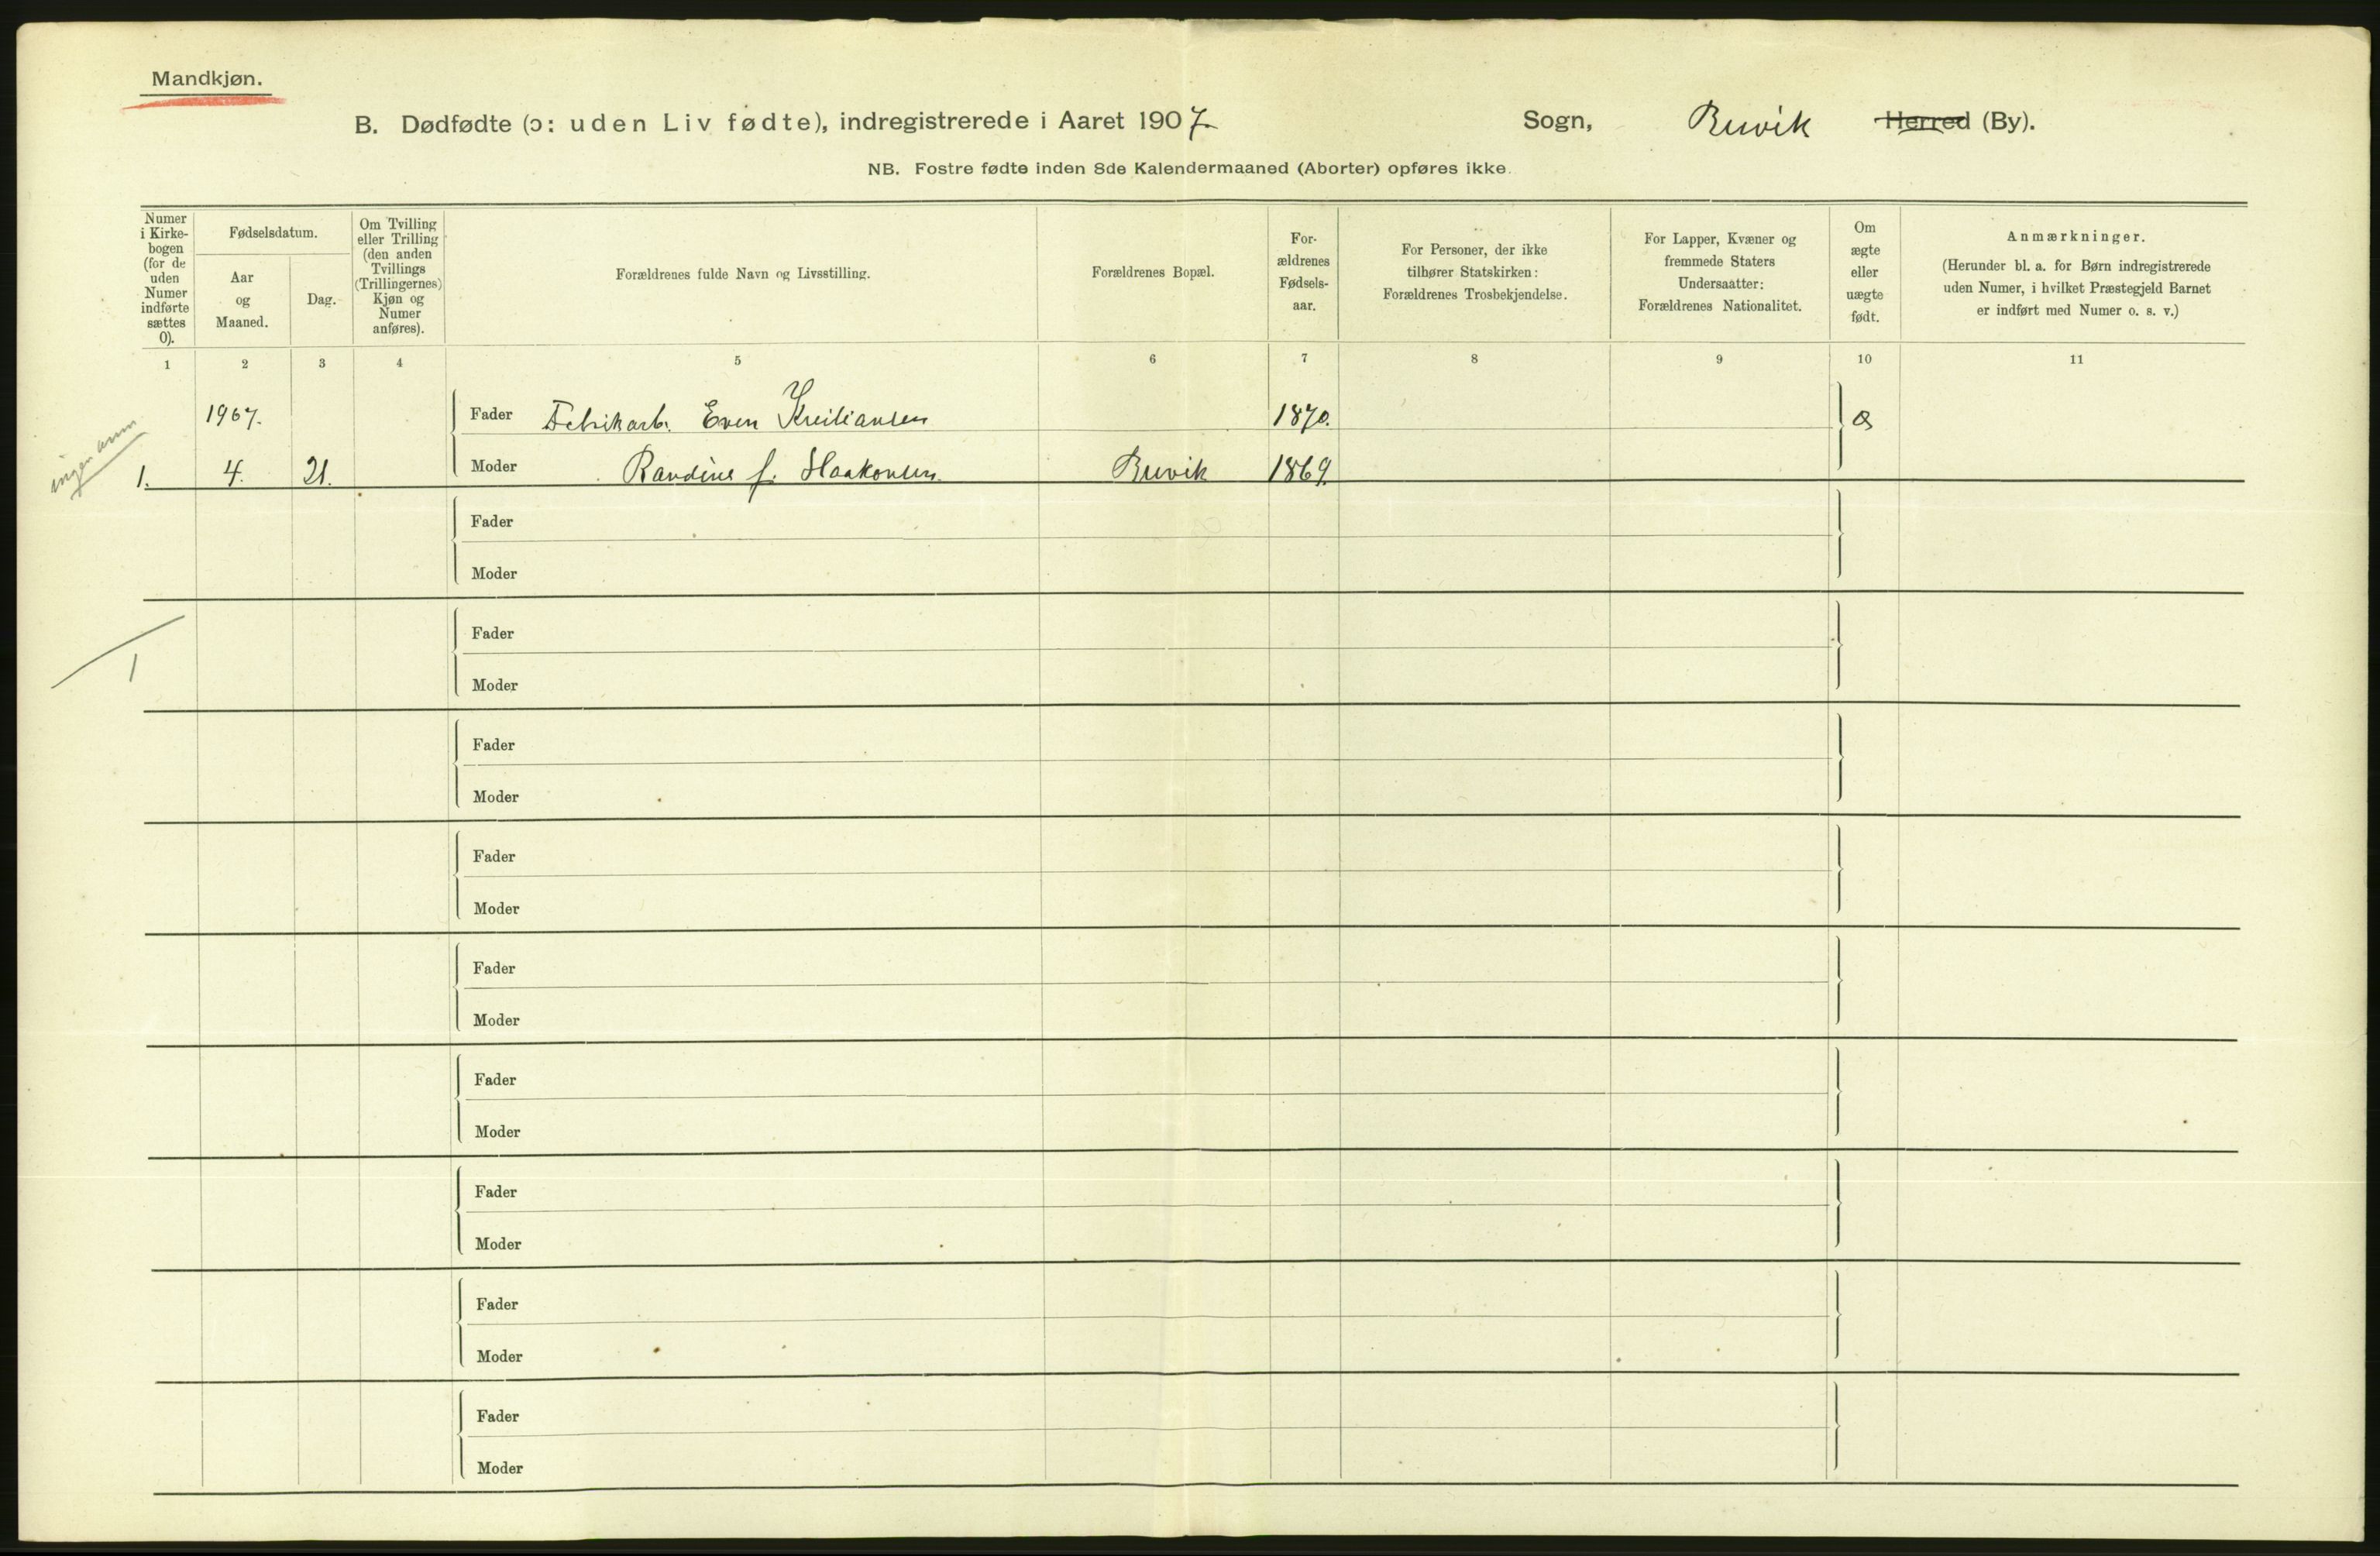 Mandkjøn.
B. Dødfødte (ɔ: uden Liv fødte), indregistrerede i Aaret 1907. Sogn, Brevik Herred (By).
NB. Fostre fødte inden 8de Kalendermaaned (Aborter) opføres ikke.
Numer i Kirke-bogen (for de uden Numer indførte sættes 0).
Fødselsdatum.
Aar og Maaned.
Dag.
Om Tvilling eller Trilling (den anden Tvillings (Trillingernes) Kjøn og Numer anføres).
Forældrenes fulde Navn og Livsstilling.
Forældrenes Bopæl.
For-ældrenes Fødsels-aar.
For Personer, der ikke tilhører Statskirken: Forældrenes Trosbekjendelse.
For Lapper, Kvæner og fremmede Staters Undersaatter: Forældrenes Nationalitet.
Om ægte eller uægte født.
Anmærkninger.
(Herunder bl. a. for Børn indregistrerede uden Numer, i hvilket Præstegjeld Barnet er indført med Numer o. s. v.)
1 2 3 4 5 6 7 8 9 10 11
1907. Fader Fabrikarb. Even 1870. æ
ingen anm
1. 4. 21. Moder Randine f. Haakonsen Brevik 1869.
Fader
Moder
Fader
1
Moder
Fader
Moder
Fader
Moder
Fader
Moder
Fader
Moder
Fader
Moder
Fader
Moder
Fader
Moder